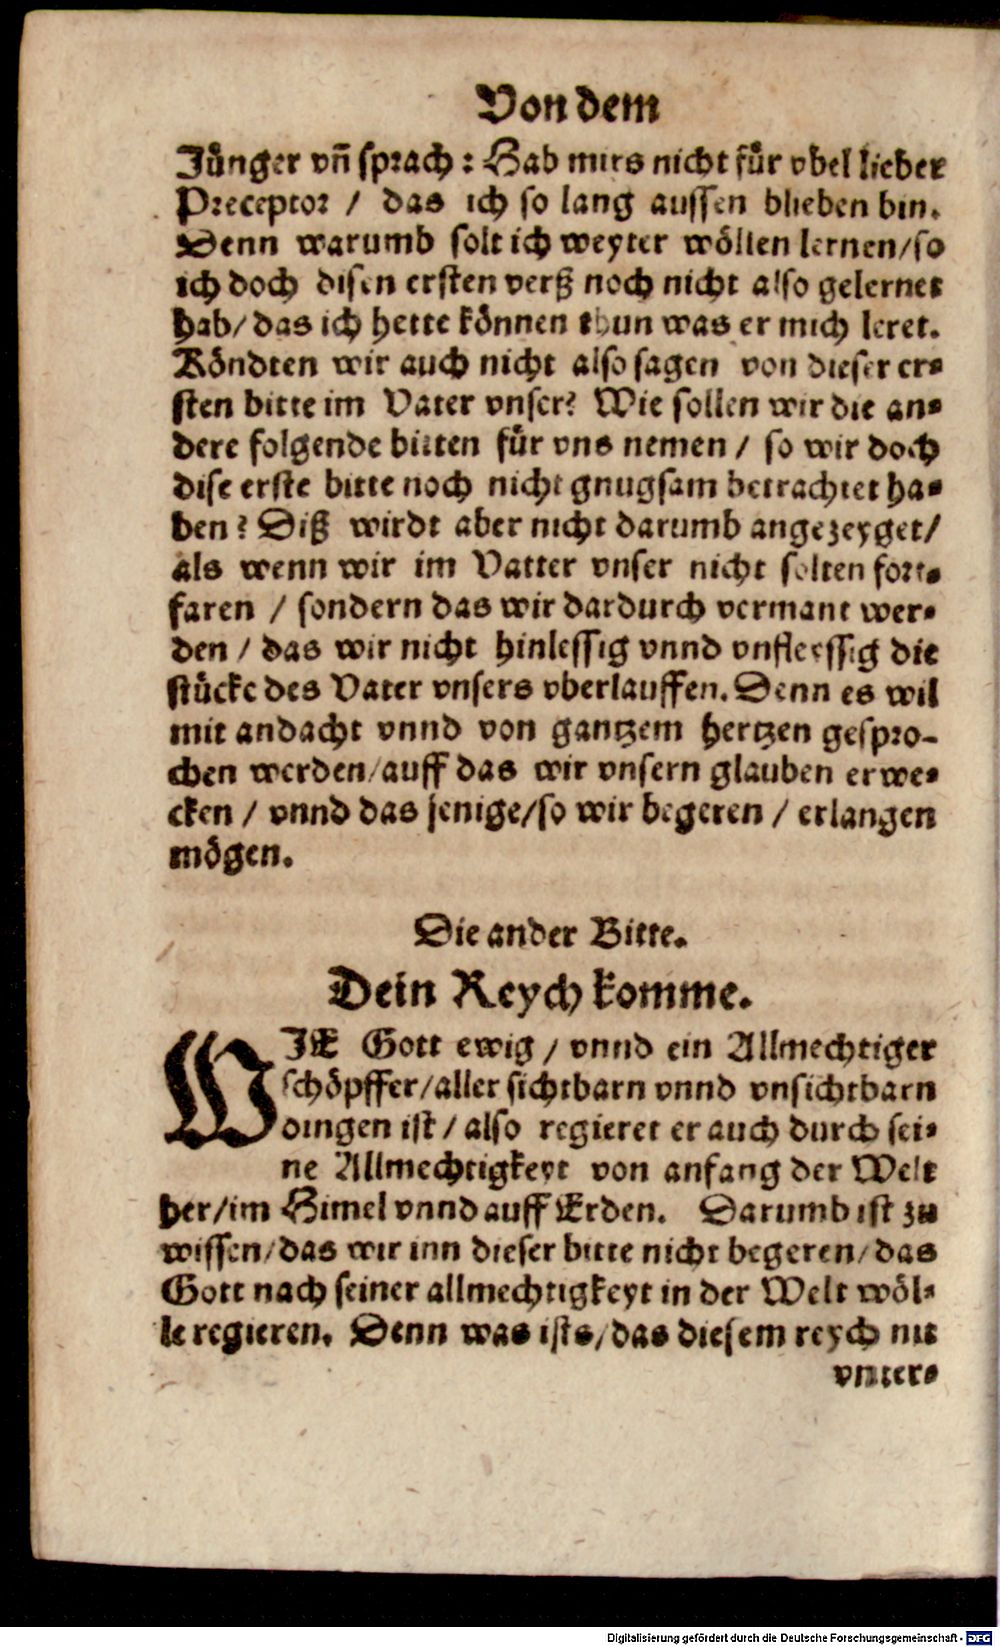 Von dem
Jünger vñ sprach: Hab mirs nicht für vbel lieber
Preceptor / das ich so lang aussen blieben bin.
Denn warumb solt ich weyter wöllen lernen/so
ich doch disen ersten verß noch nicht also gelernet
hab/das ich hette können thun was er mich leret.
Köndten wir auch nicht also sagen von dieser er-
sten bitte im Vater vnser? Wie sollen wir die an-
dere folgende bitten für vns nemen / so wir doch
dise erste bitte noch nicht gnugsam betrachtet ha-
ben? Diß wirdt aber nicht darumb angezeyget/
als wenn wir im Vatter vnser nicht solten fort-
faren / sondern das wir dardurch vermant wer-
den / das wir nicht hinlessig vnnd vnfleyssig die
stücke des Vater vnsers vberlauffen. Denn es wil
mit andacht vnnd von gantzem hertzen gespro-
chen werden/auff das wir vnsern glauben erwe-
cken / vnnd das jenige/so wir begeren / erlangen
mögen.
Die ander Bitte.
Dein Reych komme.
WIE Gott ewig / vnnd ein Allmechtiger
schöpffer/aller sichtbarn vnnd vnsichtbarn
dingen ist / also regieret er auch durch sei-
ne Allmechtigkeyt von anfang der Welt
her/im Himel vnnd auff Erden. Darumb ist zu
wissen/das wir inn dieser bitte nicht begeren/das
Gott nach seiner allmechtigkeyt in der Welt wöl-
le regieren. Denn was ists/das diesem reych nit
vnter-
Digitalisierung gefördert durch die Deutsche Forschungsgemeinschaft - DFG